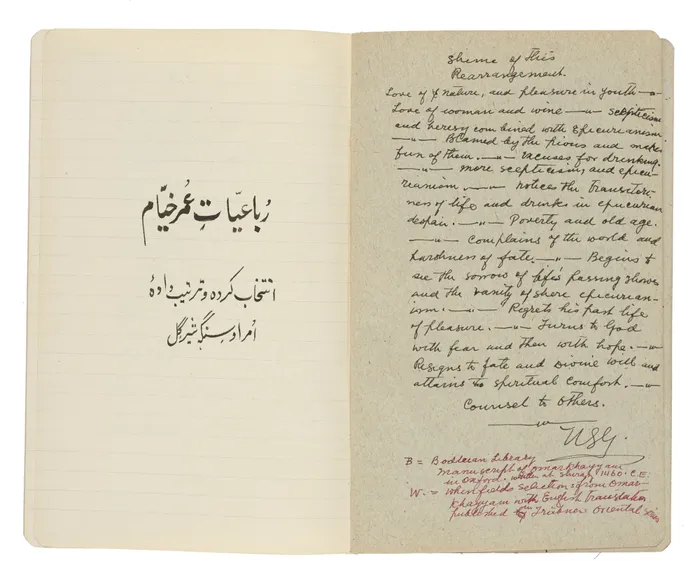 رباعیّاتِ عمر خیّام
انتخاب کرده و ترتیب دادهٔ
امراو سنگھ شیرگل
Sheme of this
Rearrangement.
Love of nature, and pleasure in youth —„—
Love of woman and wine —„— scepticism
and heresy combined with Epicureanism
—„— Blamed by the pious and makes
fun of them. —„— excuses for drinking.
—„— more scepticism, and epicu-
rianism. —„— notices the transitori-
ness of life and drinks in epicurian
despair. —„— Poverty and old age.
—„— Complains of the world and
harshness of fate. —„— Begins to
see the sorrow of life's passing shows
and the vanity of shere epicurean-
ism. —„— Regrets his past life
of pleasure. —„— Turns to God
with fear and then with hope. —„—
Resigns to fate and Divine will and
attains to spiritual comfort. —„—
Counsel to others.
USG.
B = Bodleian Library
manuscript of Omar Khayyam
in Oxford. written at Shiraz 1460. C.E.
W. = Whinfields selection from Omar
Khayyam with English Translation
published in Trübner Oriental Series